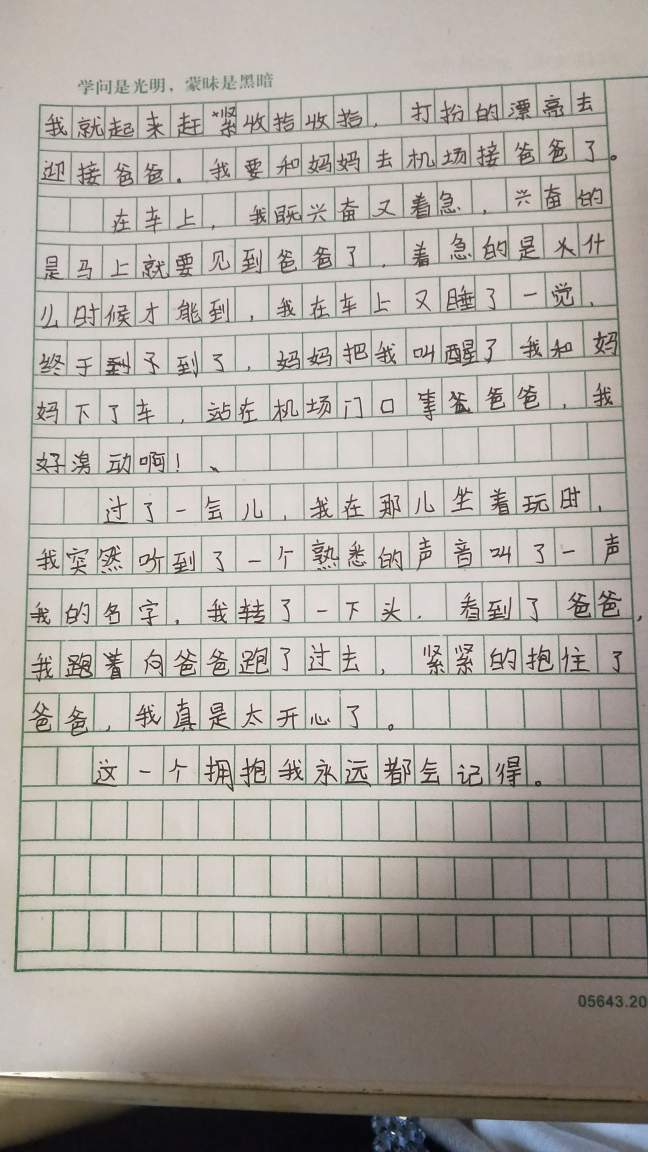 学问是光明，蒙昧是黑暗
我就起来赶紧收拾收拾，打扮的漂亮去
迎接爸爸。我要和妈妈去机场接爸爸了。
在车上，我既兴奋又着急，兴奋的
是马上就要见到爸爸了，着急的是 什
么时候才能到，我在车上又睡了一觉，
终于 到了，妈妈把我叫醒了 我和妈
妈下了车，站在机场门口 爸爸，我
好激动啊！、
过了一会儿，我在那儿坐着玩时，
我突然听到了一个熟悉的声音叫了一声
我的名字，我转了一下头，看到了爸爸，
我跑着向爸爸跑了过去，紧紧的抱住了
爸爸，我真是太开心了。
这一个拥抱我永远都会记得。
05643.20